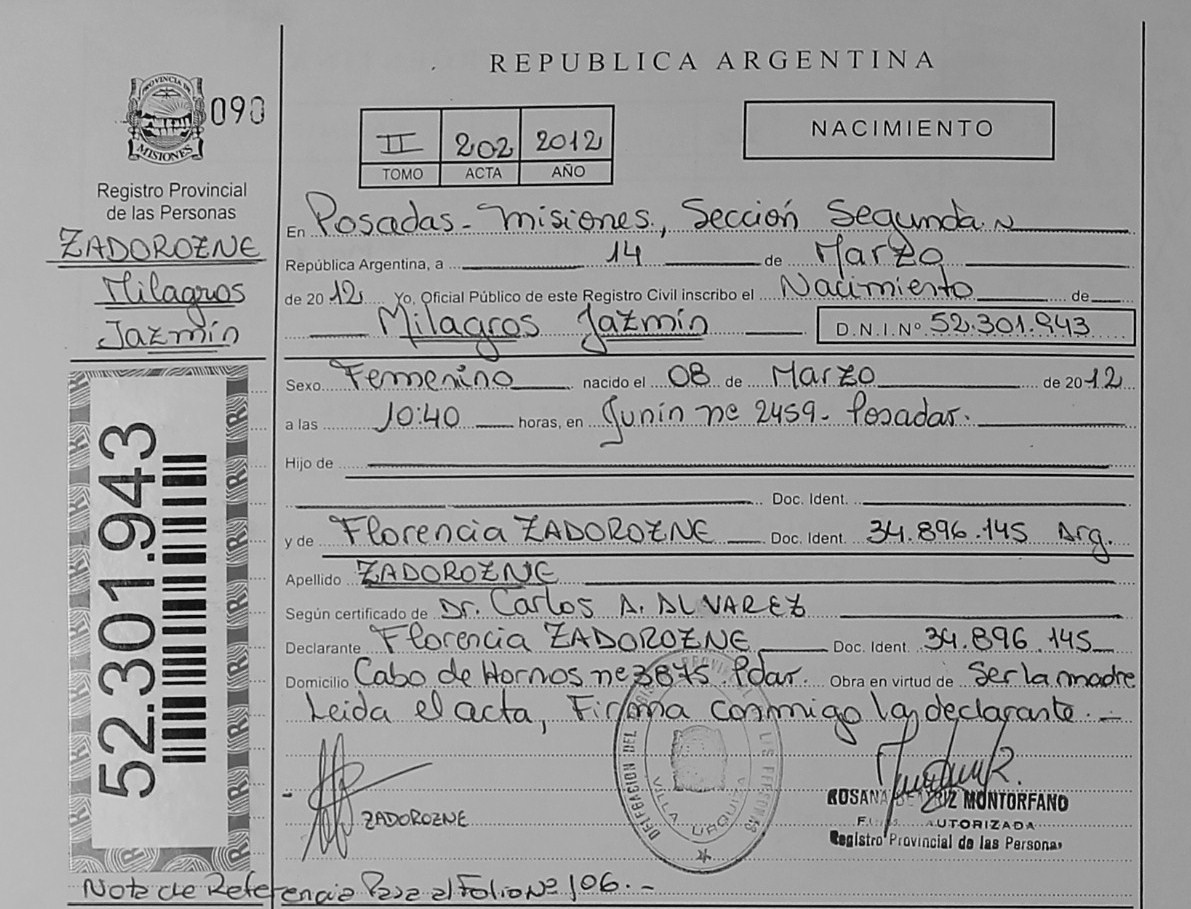 REPUBLICA ARGENTINA
PROVINCIA DE
MISIONES
090
Registro Provincial
de las Personas
ZADOROZNE
Milagros
Jazmín
52.301.943
II 202 2012
TOMO ACTA AÑO
NACIMIENTO
En Posadas - Misiones, Sección Segunda
República Argentina, a 14 de Marzo
de 2012 Yo, Oficial Público de este Registro Civil inscribo el Nacimiento de
Milagros Jazmín D.N.I.Nº 52.301.943
Sexo Femenino nacido el 08 de Marzo de 2012
a las 10:40 horas, en Junín nº 2459 - Posadas.
Hijo de
Doc. Ident.
y de Florencia ZADOROZNE Doc. Ident. 34.896.145 Arg.
Apellido ZADOROZNE
Según certificado de Dr. Carlos A. ALVAREZ
Declarante Florencia ZADOROZNE Doc. Ident. 34.896.145
Domicilio Cabo de Hornos nº 3875 Pdas. Obra en virtud de Ser la madre
Leida el acta, Firma conmigo la declarante. -
ZADOROZNE
DELEGACION DEL
VILLA URQUIZA
ROSANA MONTORFANO
AUTORIZADA
Registro Provincial de las Personas
Nota de Referencia Pasa al Folio Nº 106. -